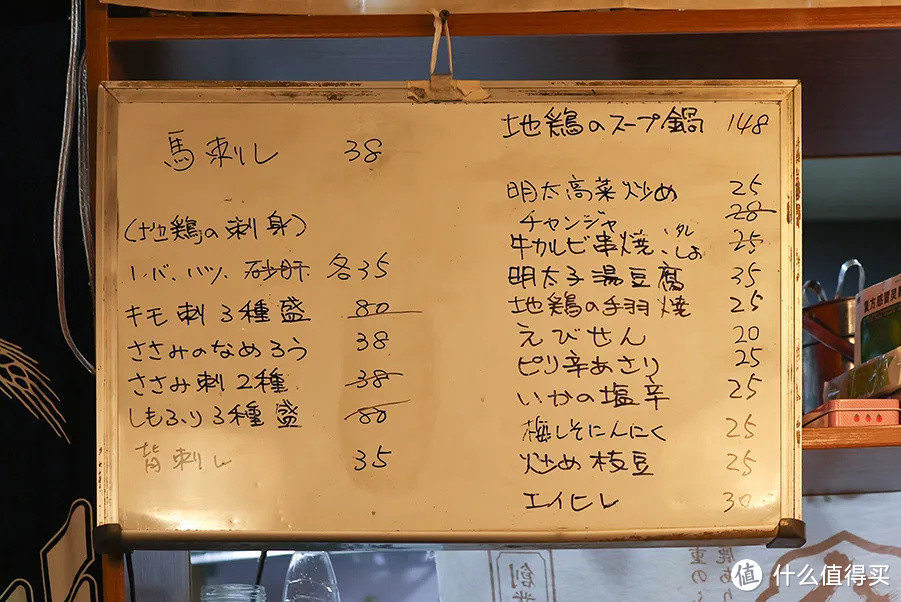 馬刺し 38
(地鶏の刺身)
レバ、ハツ、砂肝 各35
キモ刺3種盛 80
ささみのなめろう 38
ささみ刺2種 38
しもふり3種盛 80
背刺し 35
地鶏のスープ鍋 148
明太高菜炒め 25
チャンジャ 28
牛カルビ串焼、タレ、しお 25
明太子湯豆腐 35
地鶏の手羽焼 25
えびせん 20
ピリ辛あさり 25
いかの塩辛 25
梅しそにんにく 25
炒め枝豆 25
エイヒレ 30
創業
重の
值 什么值得买